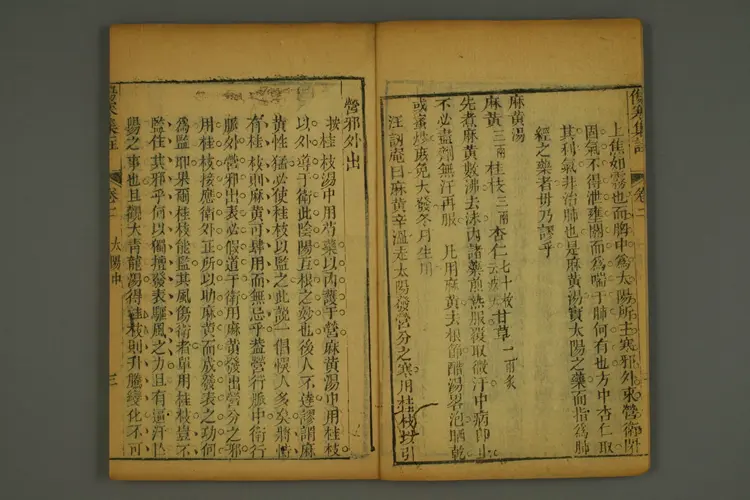 傷寒集註 卷二
上焦如霧也而胸中為太陽所主寒邪外束營衛閉
固氣不得泄壅閼而為喘于肺何有也方中杏仁取
其利氣非治肺也是麻黃湯實太陽之藥而指為肺
經之藥者毋乃謬乎
麻黃湯
麻黃三兩 桂枝三兩 杏仁七十枚 甘草一兩炙
先煮麻黃數沸去沫內諸藥煎熱服覆取微汗中病即止
不必盡劑無汗再服 凡用麻黃去根節醋湯畧泡晒乾
或蜜炒庶免太發冬月生用
汪訒庵曰麻黃辛溫走太陽發營分之寒用桂枝以引
營邪外出
按桂枝湯中用芍藥以內護于營麻黃湯中用桂枝
以外導于衛此陰陽互根之妙也後人不達謬謂麻
黃性猛必使桂枝以監之此說一倡悞人多矣將惟
有桂枝則麻黃可肆用而無忌乎葢營行脈中衛行
脈外營邪出表必假道于衛用麻黃發出營分之邪
用桂枝接應衛外正所以助麻黃而成發表之功何
為監即果爾桂枝能監其風傷衛者單用桂枝豈不
監住其邪乎何以獨擅發表驅風之力且有遏汗亡
陽之事也且觀大青龍湯得桂枝則升騰變化不可
傷寒集註 卷二 太陽中 三